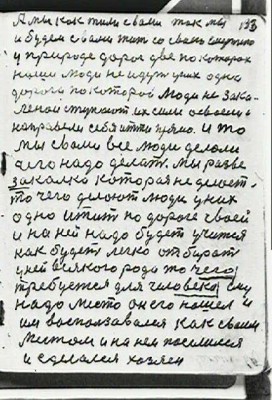 А мы как жили с вами так мы 133
и будем с вами жить со своим
у природе дороге две по которых
наши люди не идут у них одна
дорога по которой люди не зака-
леной ступают их сили
направели себя итти прямо. и то
мы с вами все люди делали
чего надо делать. мы разве
закалка которая не делает
то чего делают люди у них
одно итить по дороге своей
и на ней надо будет учится
как будет легко от бирать
у ней всякого рода то чего
требуется для человека ему
надо место он его нашел и
им воспользовался как своим
местом и на нем поселился
и сделался хозяен